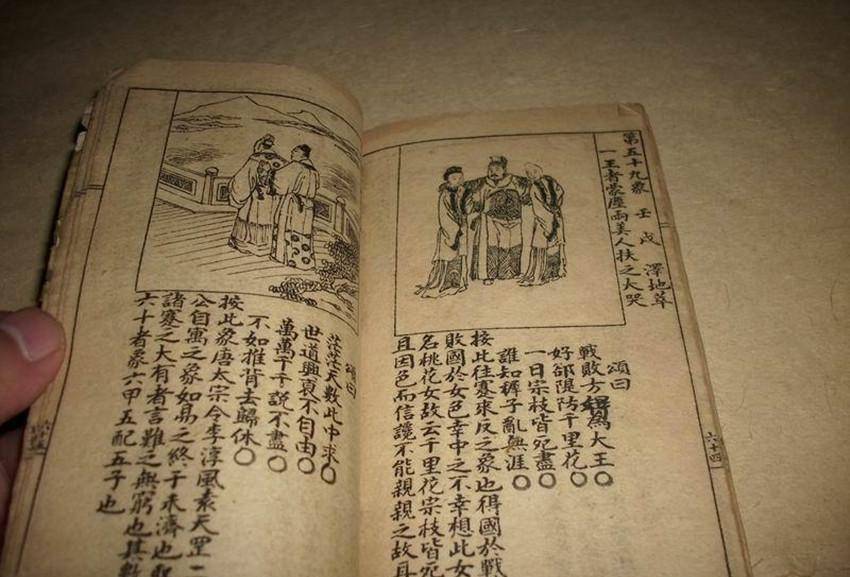 第五十九象 壬戌 澤地萃
一王者蒙塵兩美人扶之大哭
頌曰
戰敗方為大王
好卻隄防千里花
一日宗枝皆宛盡
誰知稗子亂無涯
按此往蹇來反之象也得國於戰
敗國於女色幸中之不幸想此女
名桃花女故云千里花宗枝皆宛
且因色而信讒不能親親之故耳
六十四
頌曰
茫茫天數此中求
世道興衰不自由
萬萬千千說不盡
不如推背去歸休
按此象唐太宗令李淳風袁天罡
公自寓之象如易之終于未濟也
諸蹇之大有者言難之無窮也其數
六十者象六甲五配五子也